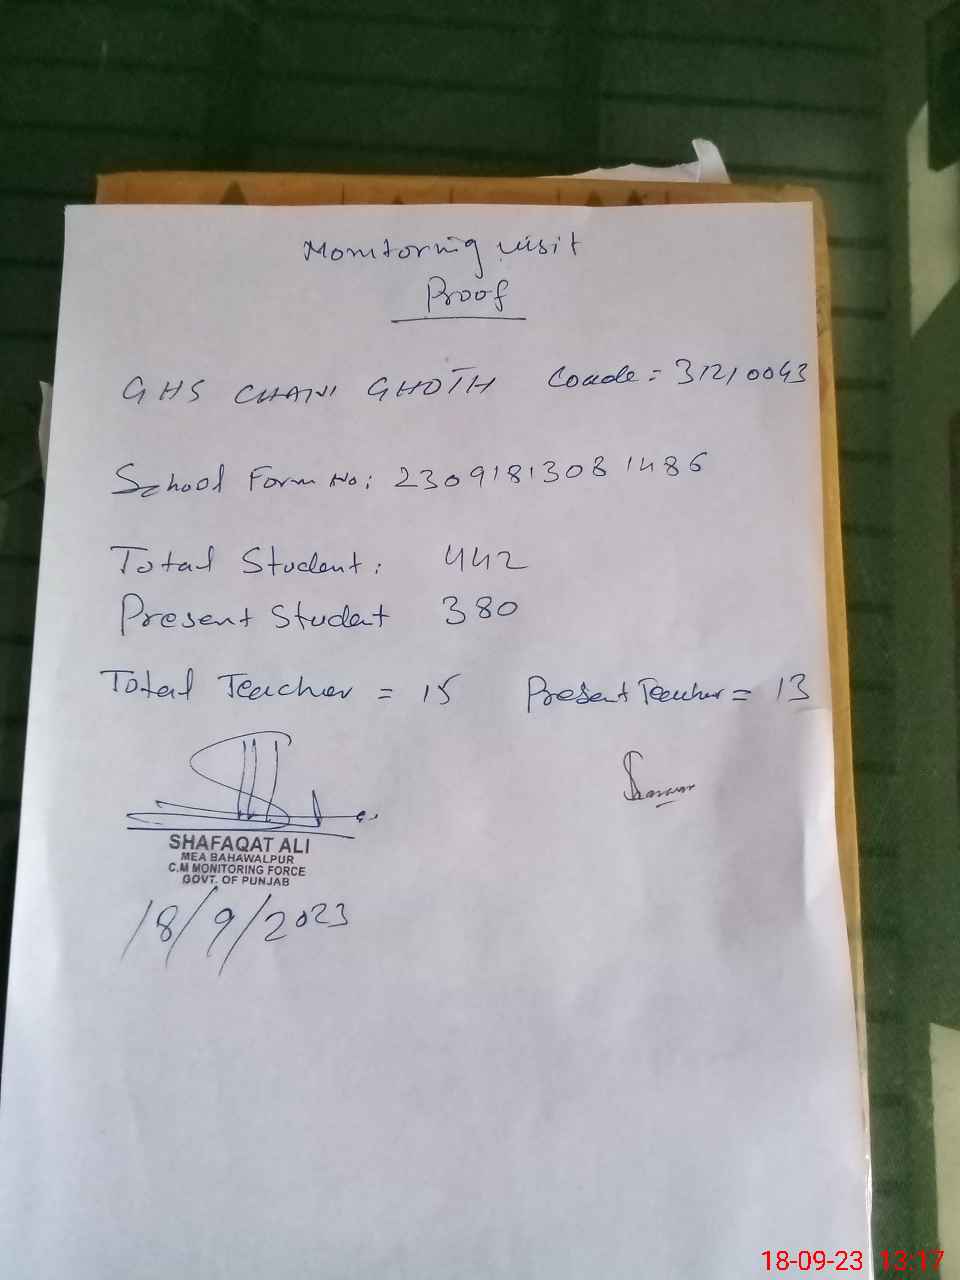 Monitoring visit
Proof
GHS CHANI GHOTH Coade = 31210043
School Form No: 23091813081486
Total Student: 442
Present Student 380
Total Teacher = 15 Present Teacher = 13
SHAFAQAT ALI
MEA BAHAWALPUR
C.M MONITORING FORCE
GOVT. OF PUNJAB
18/9/2023
18-09-23 13:17